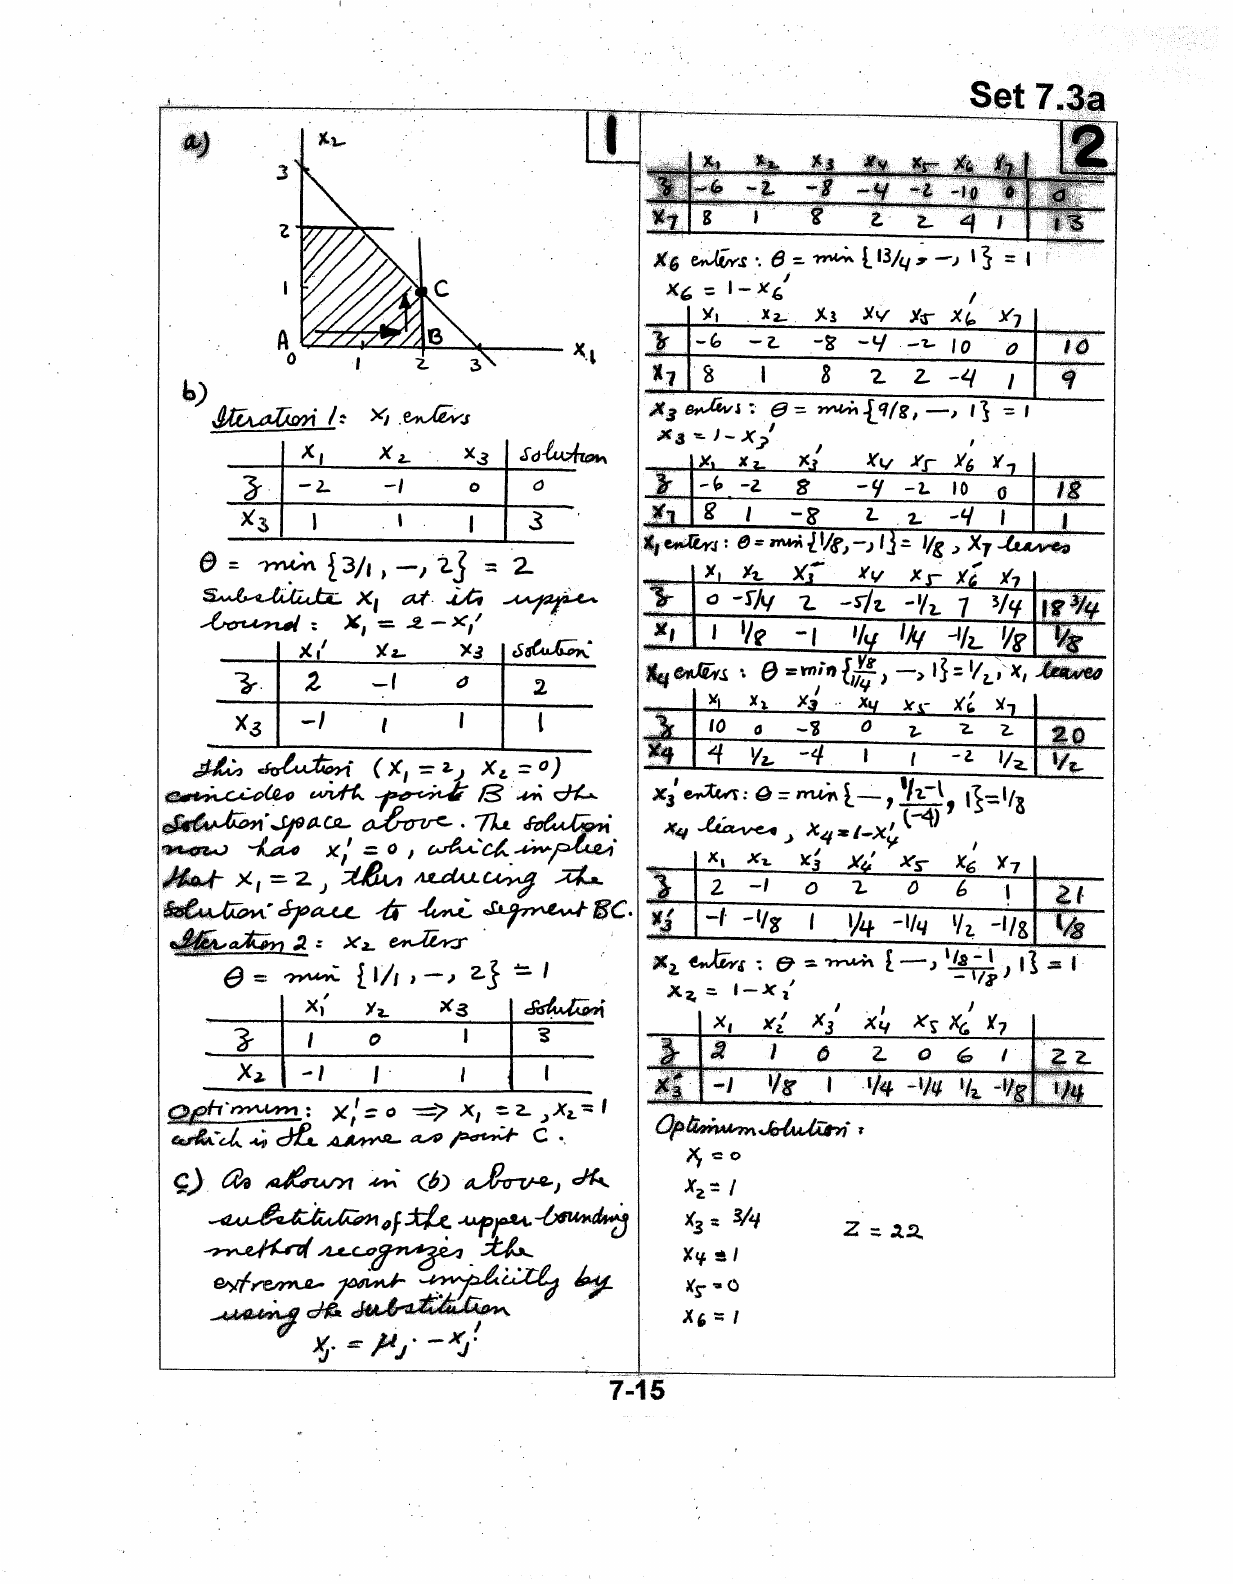 Set 7.3a
a)
1
x2
3
2
1
C
A
B
0 1 2 3 x1
b)
Iteration 1: x1 enters
x1 x2 x3 Solution
z -2 -1 0 0
x3 1 1 1 3
θ = min {3/1, —, 2} = 2
Substitute x1 at its upper
bound : x1 = 2 - x1'
x1' x2 x3 Solution
z 2 -1 0 2
x3 -1 1 1 1
This solution (x1 = 2, x2 = 0)
coincides with point B in the
Solution space above. The solution
now has x1' = 0, which implies
that x1 = 2, thus reducing the
solution space to line segment BC.
Iteration 2: x2 enters
θ = min {1/1, —, 2} = 1
x1' x2 x3 Solution
z 1 0 1 3
x2 -1 1 1 1
Optimum: x1' = 0 ⇒ x1 = 2, x2 = 1
which is the same as point C.
c) As shown in (b) above, the
substitution of the upper-bounding
method recognizes the
extreme point implicitly by
using the substitution
xj = μj - xj'
2
x1 x2 x3 x4 x5 x6 x7
z -6 -2 -8 -4 -2 -10 0 0
x7 8 1 8 2 2 4 1 13
x6 enters: θ = min {13/4, —, 1} = 1
x6 = 1 - x6'
x1 x2 x3 x4 x5 x6' x7
z -6 -2 -8 -4 -2 10 0 10
x7 8 1 8 2 2 -4 1 9
x3 enters: θ = min {9/8, —, 1} = 1
x3 = 1 - x3'
x1 x2 x3' x4 x5 x6' x7
z -6 -2 8 -4 -2 10 0 18
x7 8 1 -8 2 2 -4 1 1
x1 enters: θ = min {1/8, —, 1} = 1/8, x7 leaves
x1 x2 x3' x4 x5 x6' x7
z 0 -5/4 2 -5/2 -1/2 7 3/4 18 3/4
x1 1 1/8 -1 1/4 1/4 -1/2 1/8 1/8
x4 enters: θ = min {(1/8)/(1/4), —, 1} = 1/2, x1 leaves
x1 x2 x3' x4 x5 x6' x7
z 10 0 -8 0 2 2 2 20
x4 4 1/2 -4 1 1 -2 1/2 1/2
x3' enters: θ = min {—, (1/2-1)/(-4), 1} = 1/8
x4 leaves, x4 = 1 - x4'
x1 x2 x3' x4' x5 x6' x7
z 2 -1 0 2 0 6 1 21
x3' -1 -1/8 1 1/4 -1/4 1/2 -1/8 1/8
x2 enters: θ = min {—, (1/8-1)/(-1/8), 1} = 1
x2 = 1 - x2'
x1 x2' x3' x4' x5 x6' x7
z 2 1 0 2 0 6 1 22
x3' -1 1/8 1 1/4 -1/4 1/2 -1/8 1/4
Optimum solution:
x1 = 0
x2 = 1
x3 = 3/4 Z = 22
x4 = 1
x5 = 0
x6 = 1
7-15